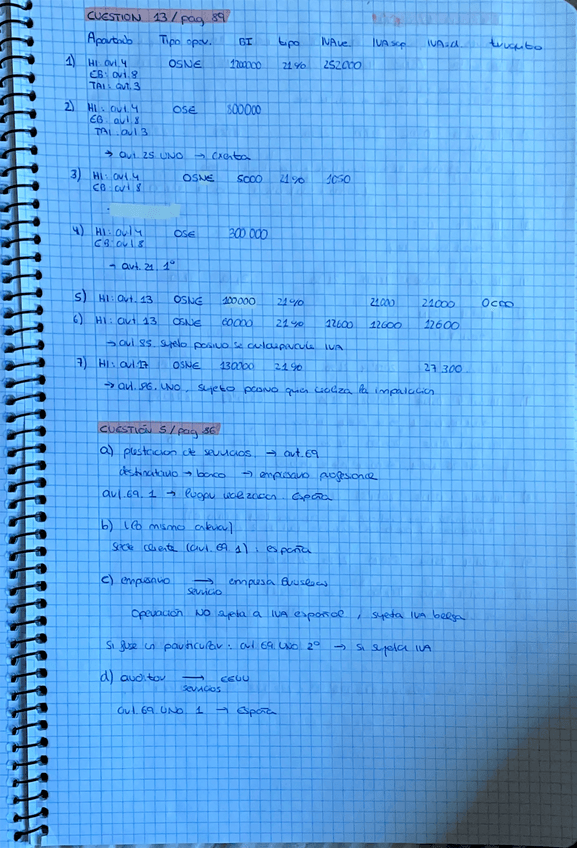 CUESTION 13 / pag 89
Apartado Tipo oper. BI tipo IVA rep IVA sop IVA d
1) HI: art. 4 OSNE 1200000 21% 252000
EB: art. 8
TAI: art. 3
2) HI: art 4 OSE 800000
EB: art 8
TAI. art 3
→ art 25 UNO → exentas
3) HI: art. 4 OSNE 5000 21% 1050
EB: art 8
4) HI: art 4 OSE 300 000
EB: art 8
→ art. 21. 1º
5) HI: art. 13 OSNE 100000 21% 21000 21000
6) HI: art. 13 OSNE 60000 21% 12600 12600 12600
→ art 85. sujeto pasivo IVA
7) HI: art 17 OSNE 130000 21% 27 300
→ art. 86. UNO. sujeto pasivo quien realiza la importación
CUESTIÓN 5 / pag 86
a) prestación de servicios. → art. 69
destinatario → banco → empresario profesional
art. 69. 1 → lugar realización. España
b) (lo mismo)
sede cliente (art. 69. 1): españa
c) empresario → empresa Bruselas
servicio
Operación NO sujeta a IVA español, sujeta IVA belga
Si fuese un particular: art 69 UNO 2º → Si sujeta IVA
d) auditor → EEUU
servicios
art. 69. UNO. 1 → españa